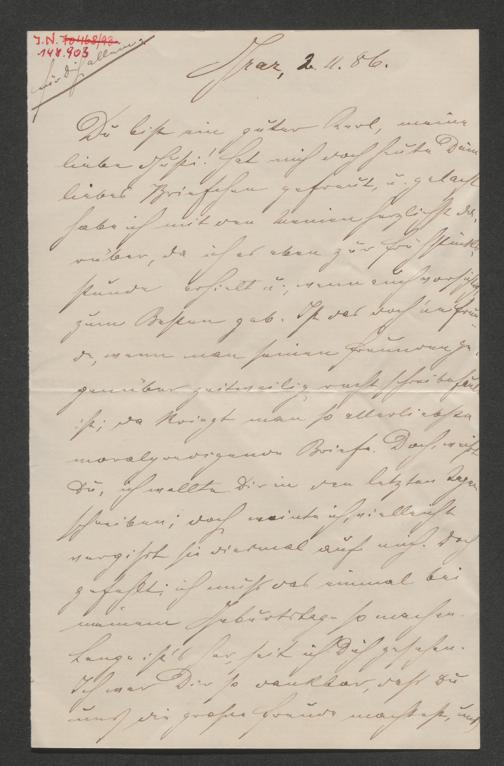 I.N. 70468/93
148.903
Graz, 2. 11. 86.
Du bist ein guter Kerl, meine
liebe Hat mich doch heute Dein
liebes Briefchen gefreut, u. gelacht
habe ich mit den Meinen herzlichst da-
rüber, da ich es eben zur Frühstücks-
stunde erhielt u. vorsichtig
zum Besten gab. Ist das doch
wenn man seinen Freunden ge-
genüber zeitweilig recht schreibfaul
ist; da kriegt man so allerliebste
moralpredigende Briefe. Doch, weißt
Du, ich wollte Dir in den letzten Tagen
schreiben; doch meinte ich, vielleicht
vergißt sie diesmal auf mich. Doch
gefehlt; ich muß das einmal bei
meinem Geburtstage so machen.
Lange ist's her, seit ich Dich gesehen.
Ich war Dir so dankbar, daß Du
uns die große Freude machtest, uns